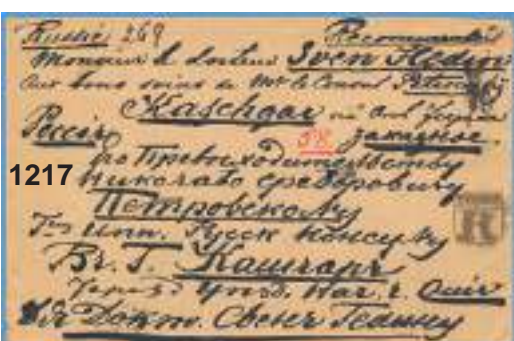 Russie 269 Recommandé
Monsieur le docteur Sven Hedin
Aux bons soins de Mr le Consul Petrovsky
Kaschgar via
Россія 58 заказное.
1217
Его Превосходительству
Николаю Федоровичу
Петровскому
Имп. Русск Консулу
Въ Г. Кашгаръ
г. Ошъ
Для Докт. Свенъ Гедину
R